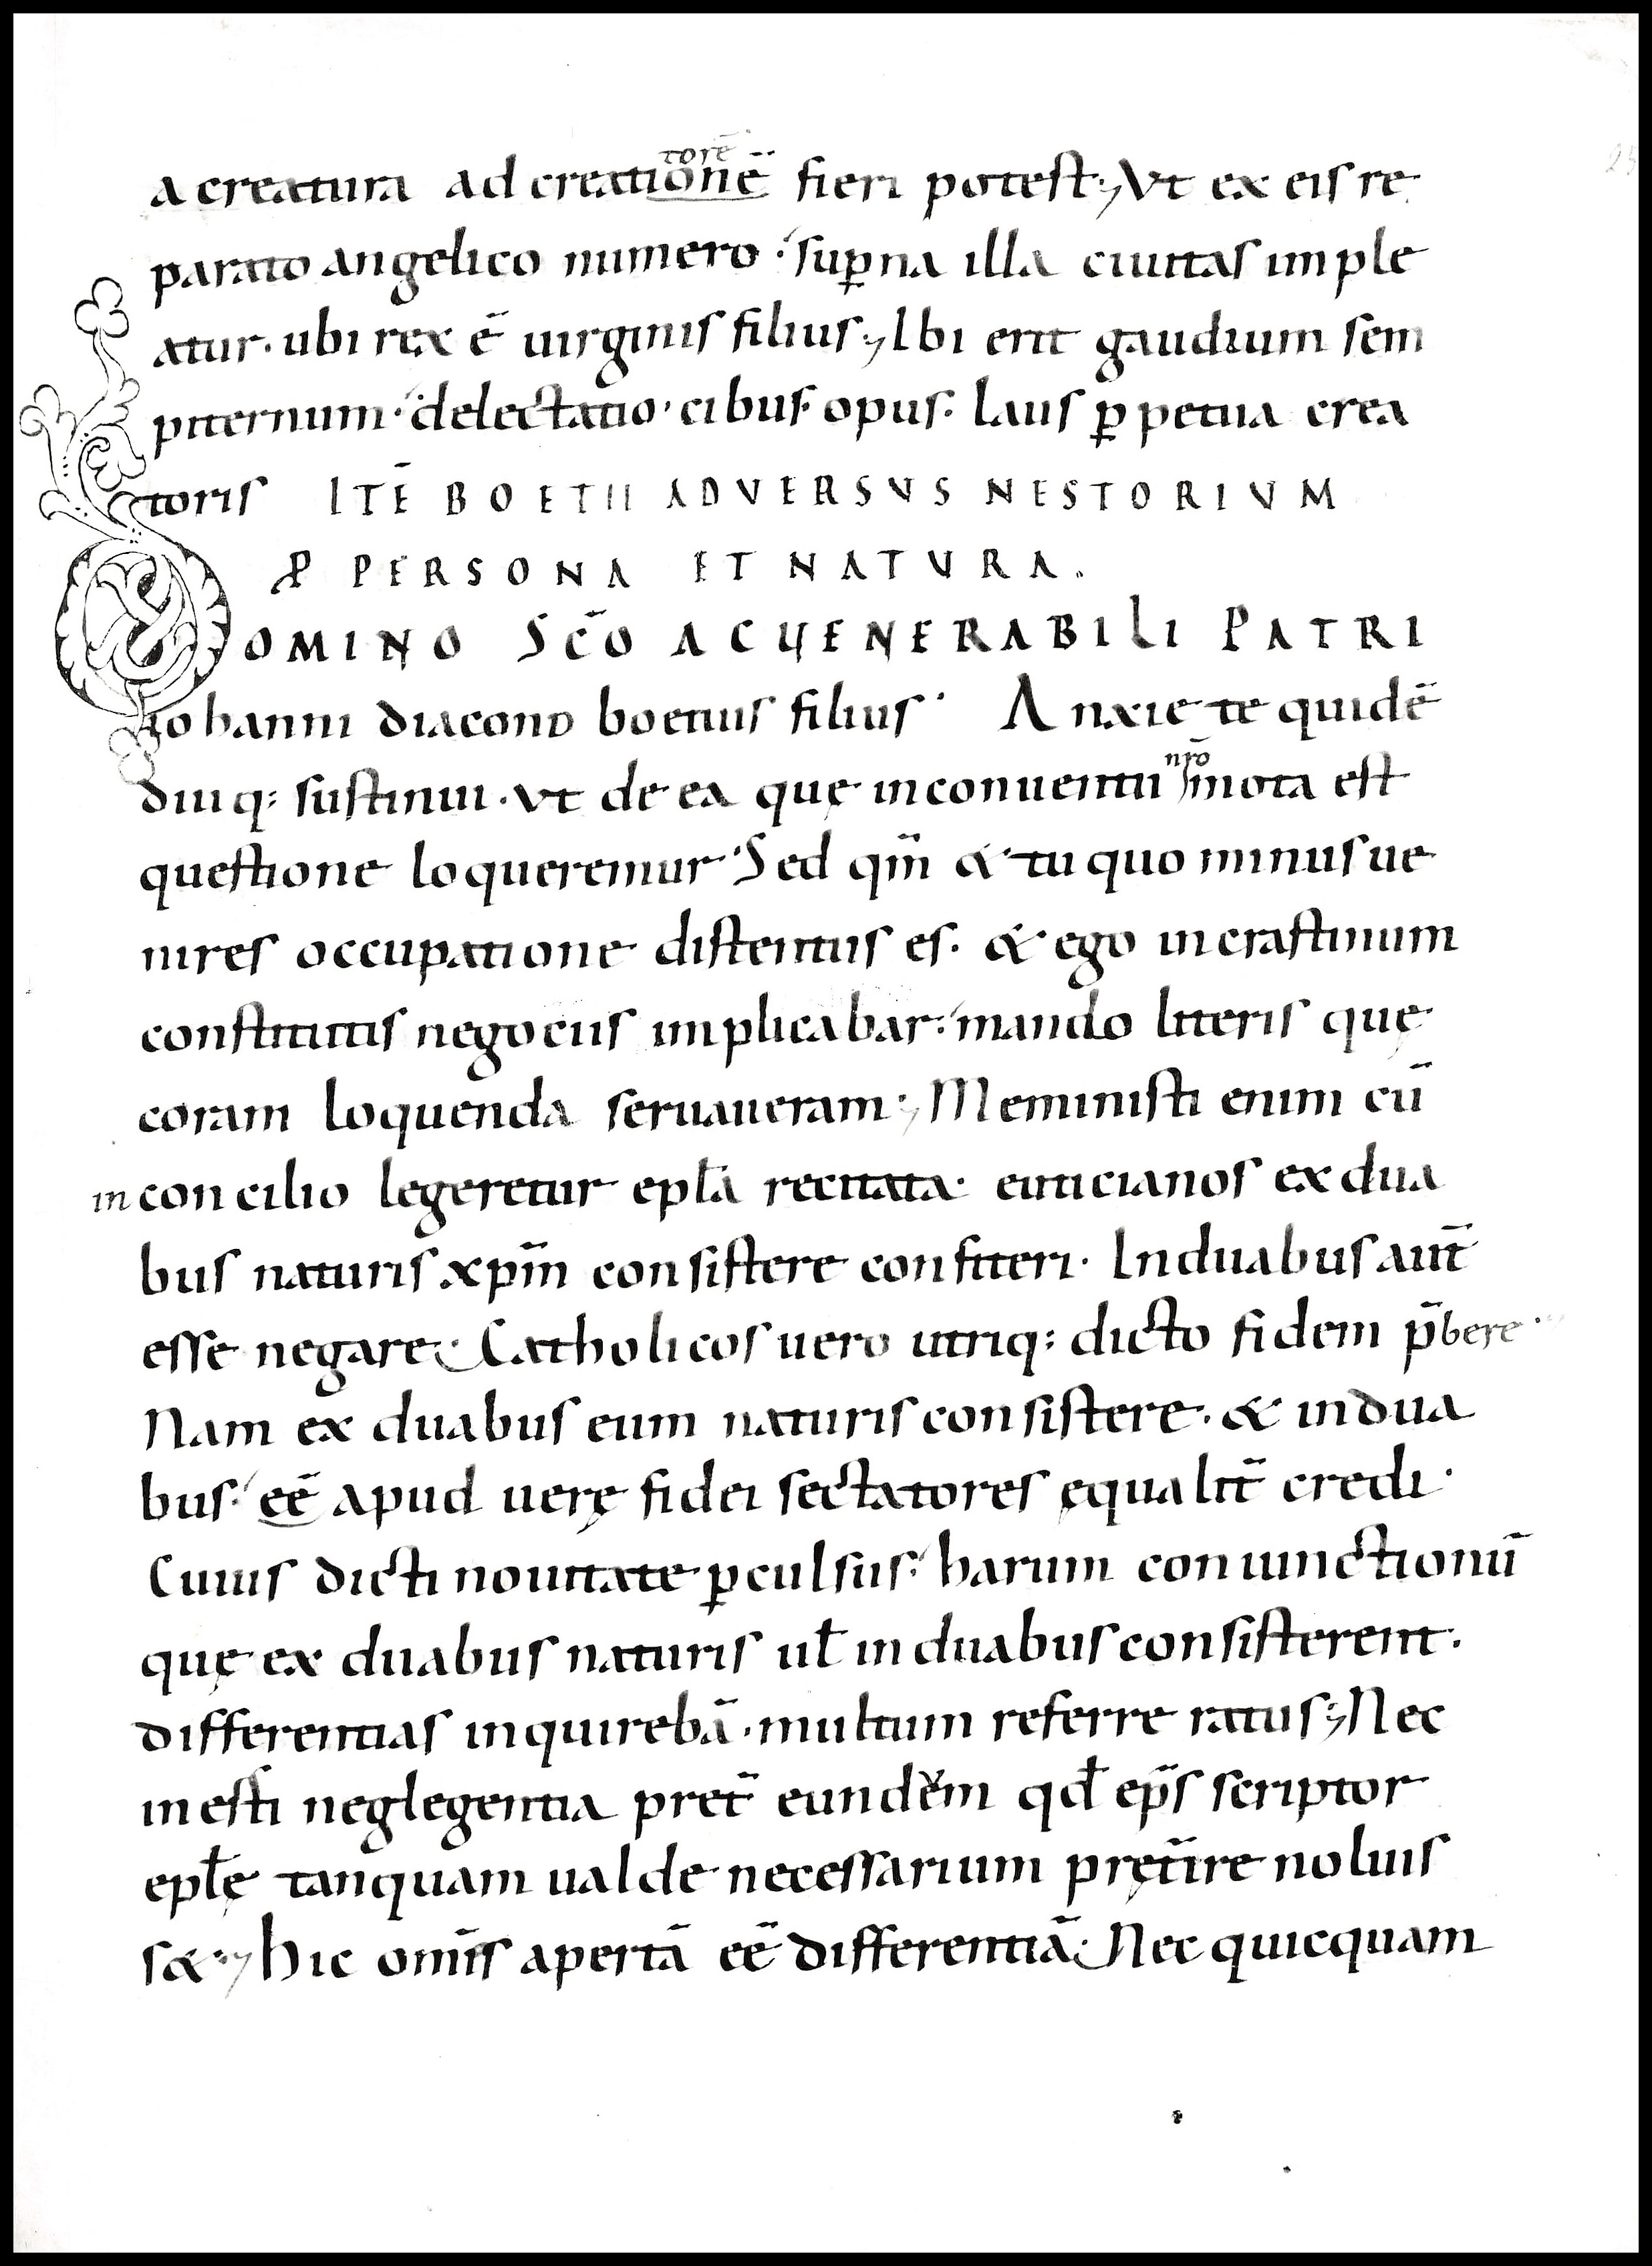 torē
a creatura ad creationē fieri potest; Vt ex eis re
parato angelico numero · sup̱na illa ciuitas imple
atur · ubi rex ē uirginis filius; Ibi erit gaudium sem
piternum · delectatio · cibus · opus · laus p̱petua crea
toris ITĒ BOETII ADVERSVS NESTORIVM
P PERSONA ET NATVRA.
DOMINO SC̄O AC VENERABILI PATRI
Iohanni diacono boetius filius · Anxie te quidē
diuq: sustinui · vt de ea quę in conuentu nr̄o mota est
questione loqueremur · Sed qm̄ & tu quo minus ue
nires occupatione distentus es · & ego in crastinum
constitutis negociis implicabar · mando literis quę
coram loquenda seruaueram; Meministi enim cū
in concilio legeretur epl̄a recitata · euticianos ex dua
bus naturis xpm̄ consistere confiteri · In duabus aut̄
esse negare; Catholicos uero utriq: dicto fidem p̄bere ·
Nam ex duabus eum naturis consistere · & in dua
bus · eē apud uerę fidei sectatores ęqualit̄ credi ·
Cuius dicti nouitate p̱culsus · harum coniunctionū
quę ex duabus naturis ul̄ in duabus consisterent ·
differentias inquirebā · multum referre ratus; Nec
inesti neglegentia pret̄ eundēm qd̄ ep̄s scriptor
epl̄ę tanquam ualde necessarium pręt̄ire noluis
s&; hic om̄is apertā eē differentiā · Nec quicquam